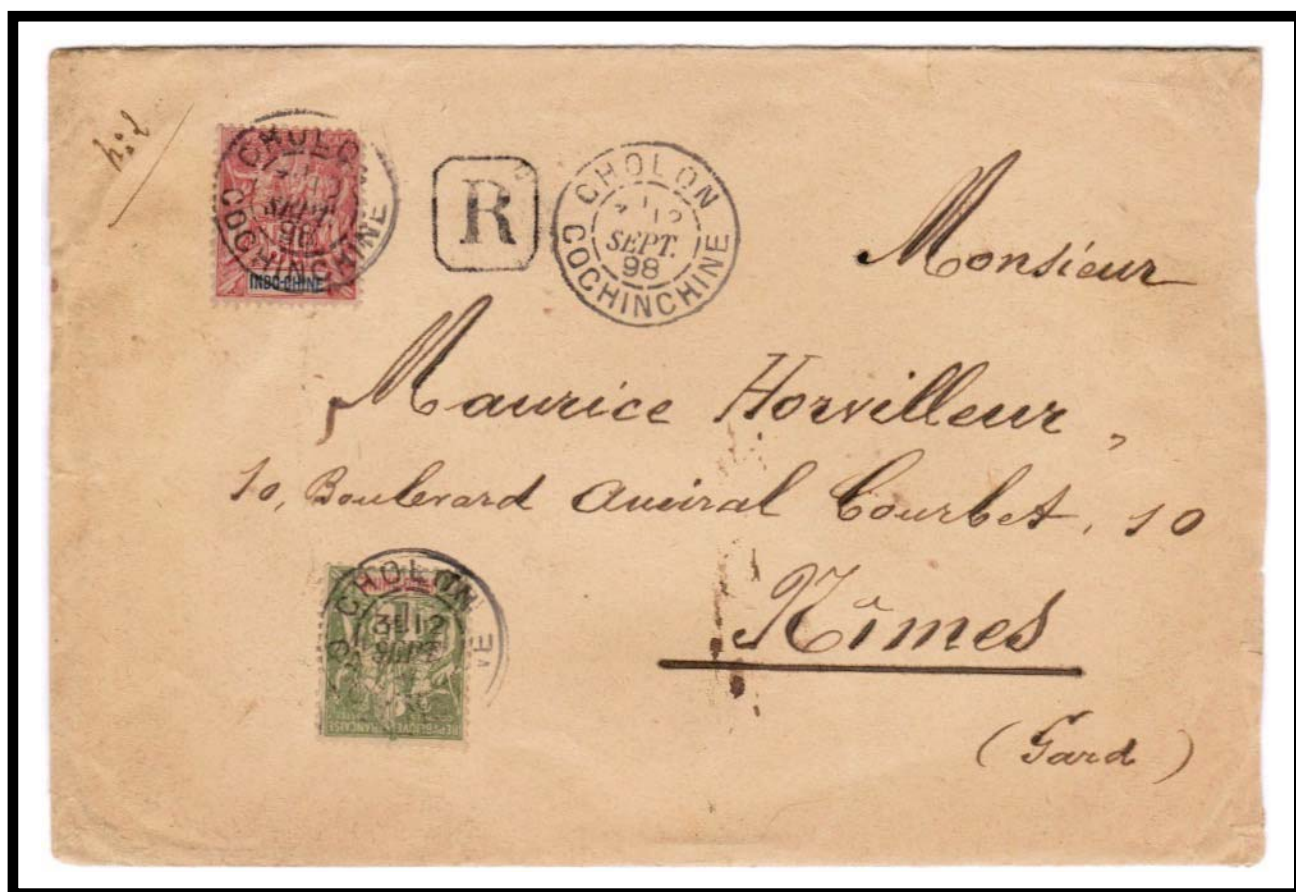 CHOLON
SEPT.
98
COCHINCHINE
INDO-CHINE
R
CHOLON
SEPT.
98
COCHINCHINE
Monsieur
Maurice Horvilleur,
10, Boulevard Amiral Courbet, 10
Nîmes
(Gard)
CHOLON
12
SEPT.
REPUBLIQUE FRANÇAISE